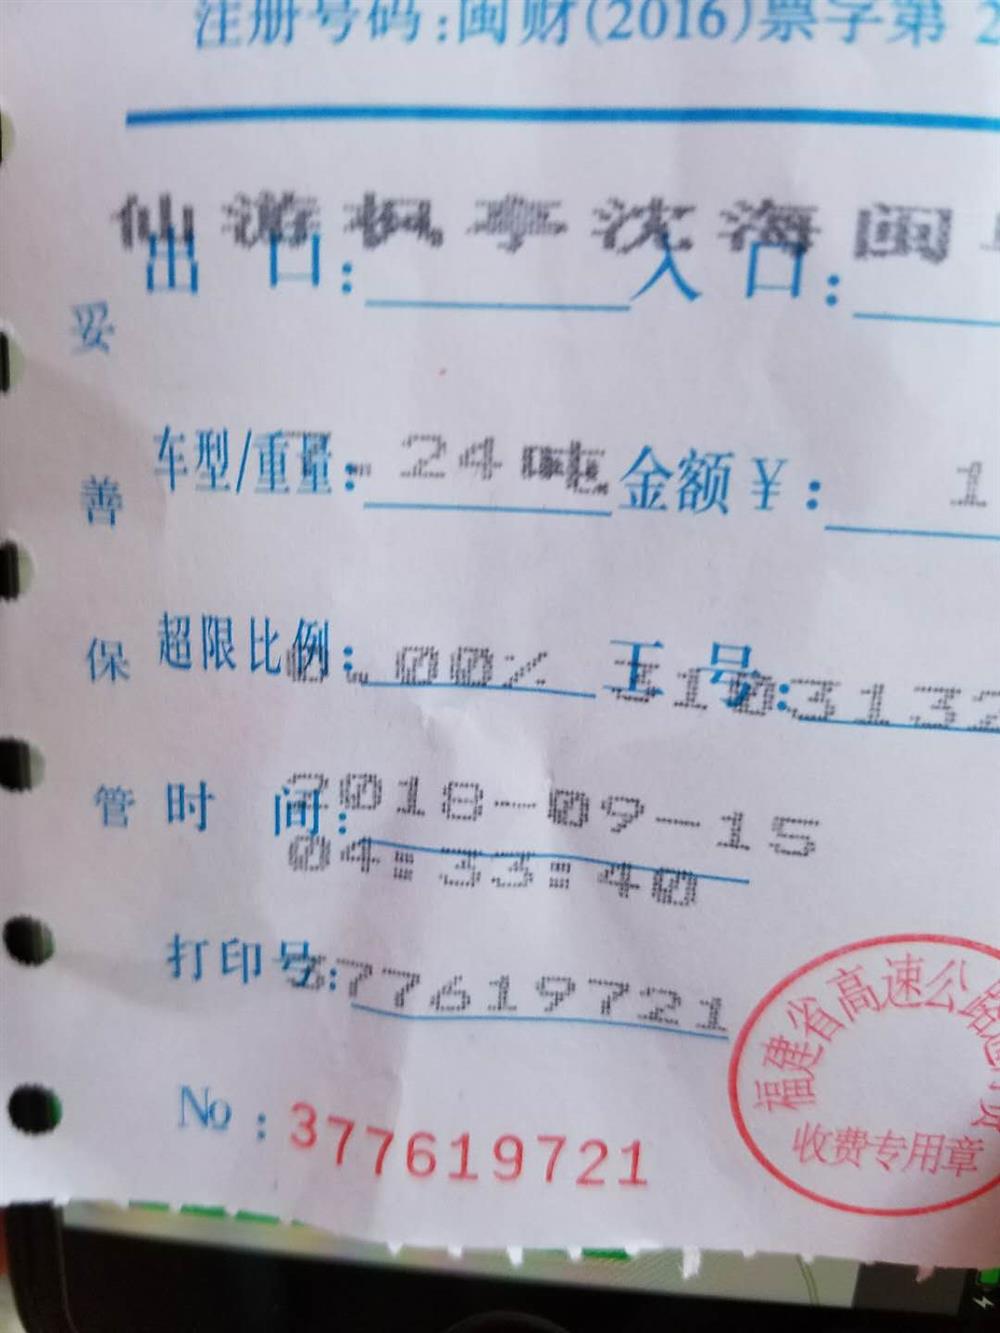 注册号码:闽财(2016)票字第 2
仙游枫亭 沈海闽
出 口: 入 口:
车型/重量: 24吨 金额¥: 1
超限比例: 0.00% 工 号: 3103132
时 间: 2018-09-15
04:33:40
打印号: 377619721
No: 377619721
妥善保管
福建省高速公路
收费专用章